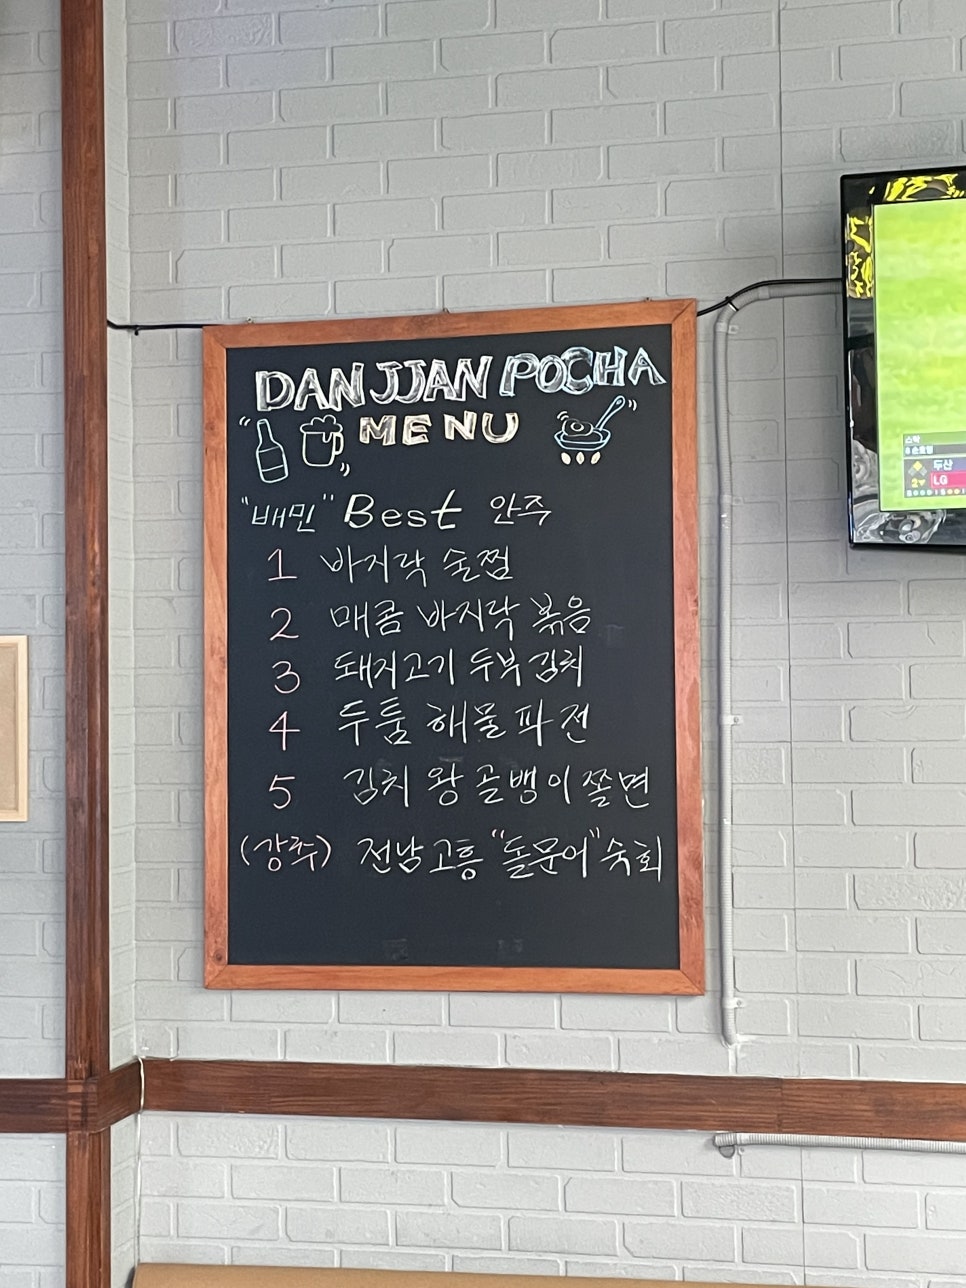 DANJJAN POCHA
MENU
"배민" Best 안주
1 바지락 술찜
2 매콤 바지락 볶음
3 돼지고기 두부김치
4 두툼 해물파전
5 김치 왕골뱅이 쫄면
(강추) 전남고흥 "돌문어" 숙회
두산
LG